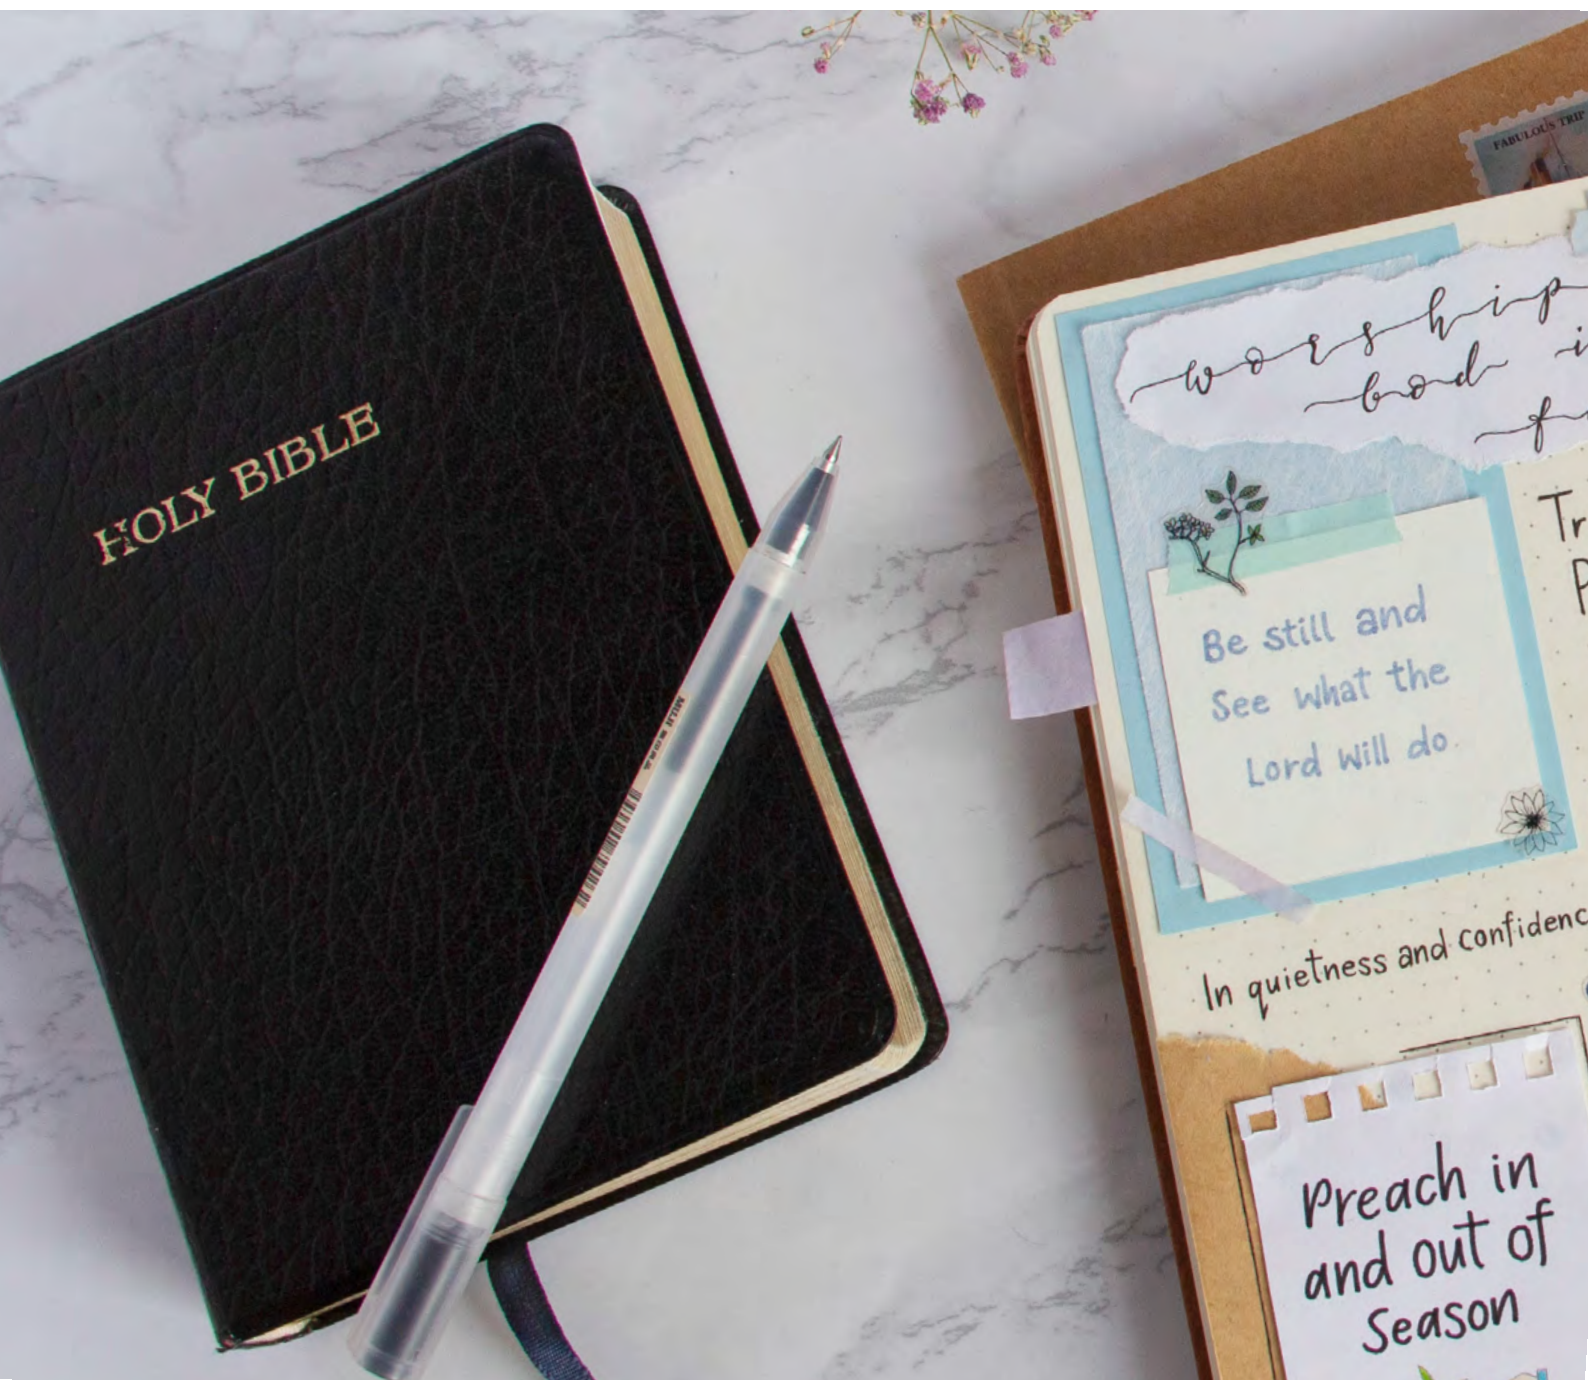 HOLY BIBLE
FABULOUS TRIP
worship
God i
f
Be still and
See what the
Lord will do.
Tr
P
In quietness and confidenc
Preach in
and out of
Season